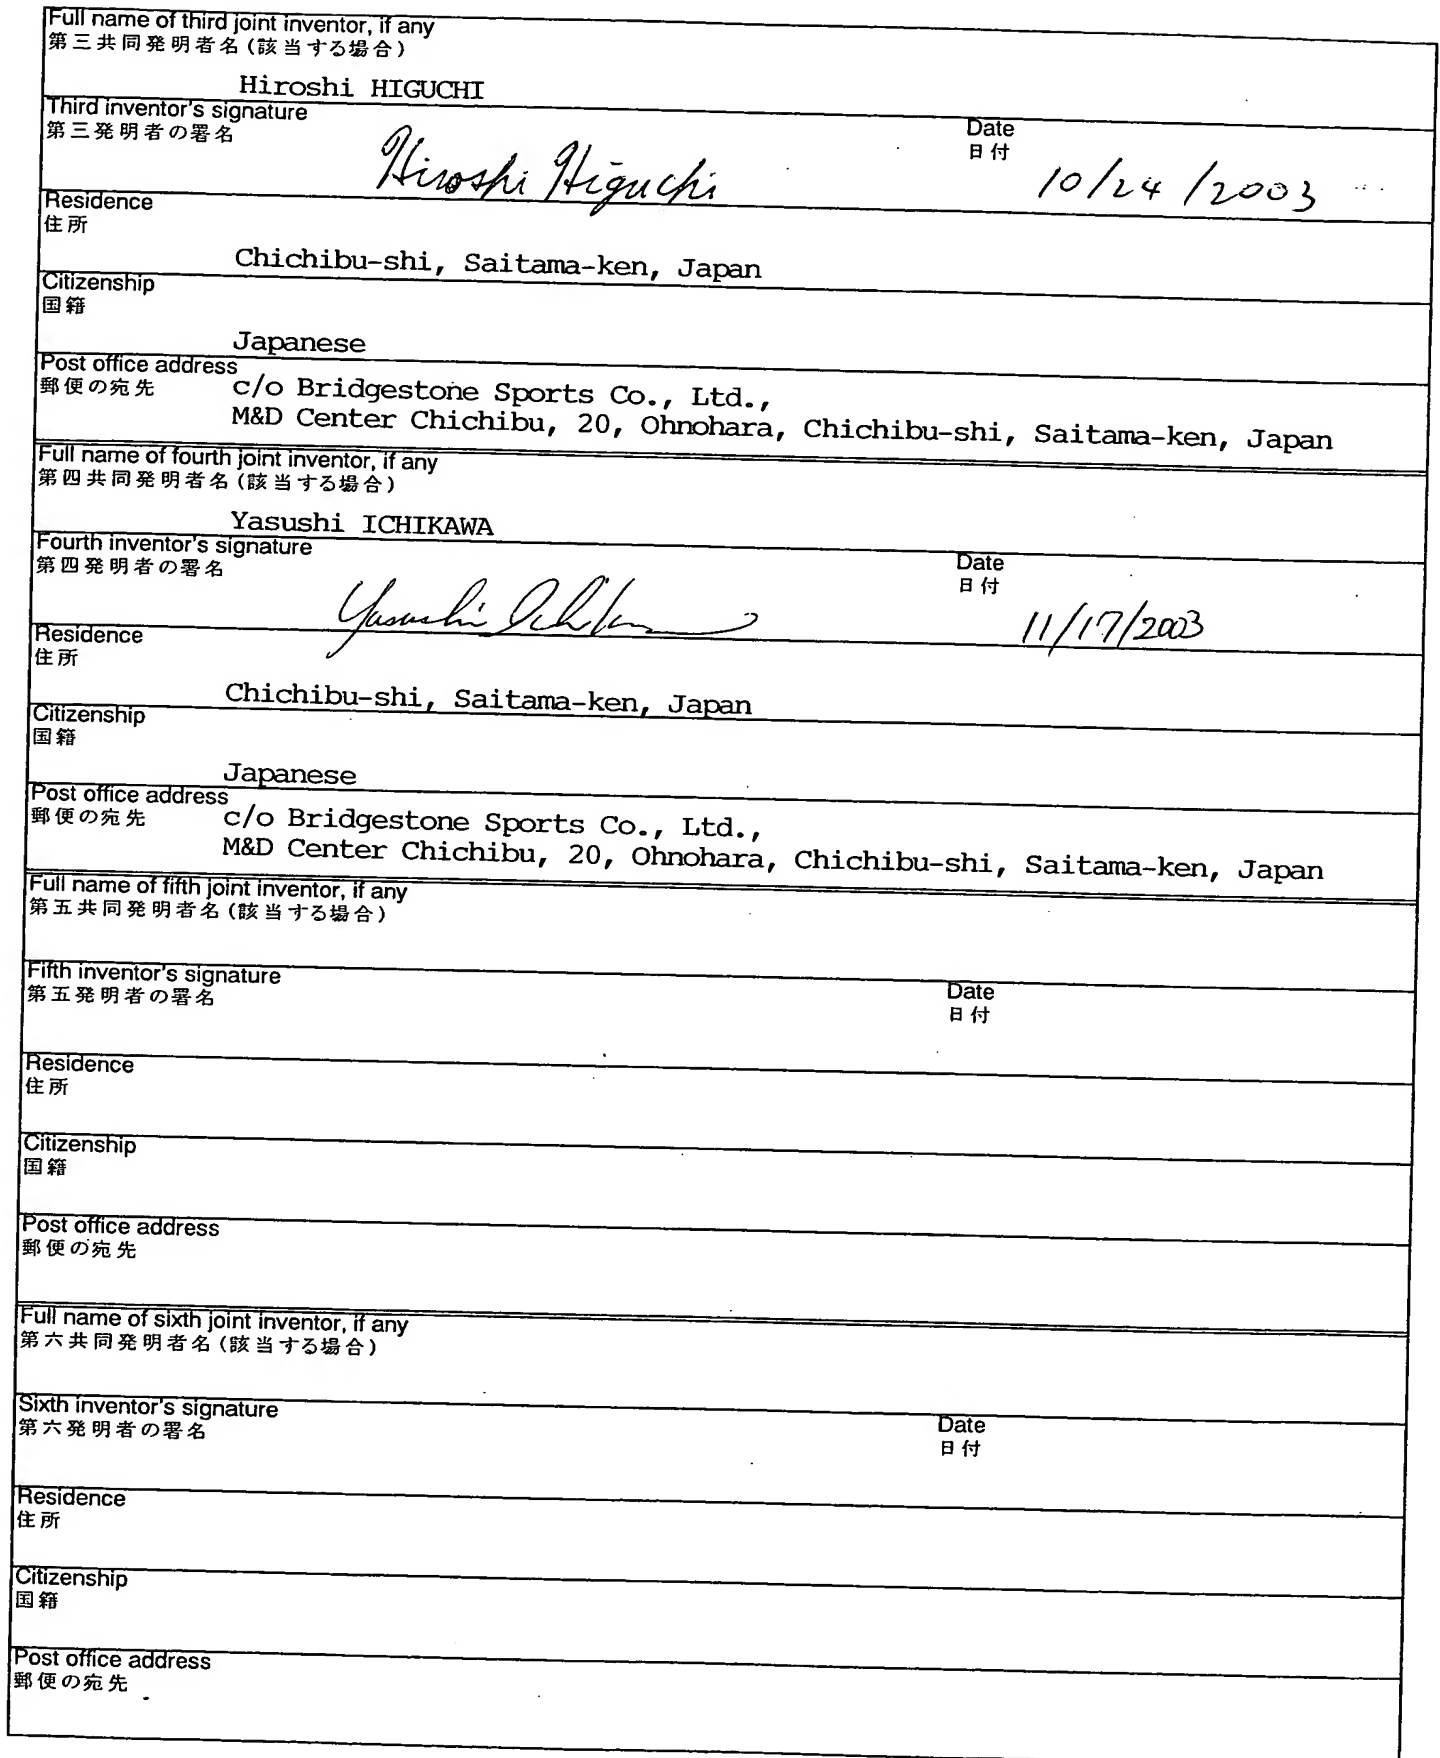 Full name of third joint inventor, if any
第三共同発明者名(該当する場合)
Hiroshi HIGUCHI
Third inventor's signature
第三発明者の署名
Hiroshi Higuchi
Date
日付
10/24/2003
Residence
住所
Chichibu-shi, Saitama-ken, Japan
Citizenship
国籍
Japanese
Post office address
郵便の宛先
c/o Bridgestone Sports Co., Ltd.,
M&D Center Chichibu, 20, Ohnohara, Chichibu-shi, Saitama-ken, Japan
Full name of fourth joint inventor, if any
第四共同発明者名(該当する場合)
Yasushi ICHIKAWA
Fourth inventor's signature
第四発明者の署名
Yasushi Ichikawa
Date
日付
11/17/2003
Residence
住所
Chichibu-shi, Saitama-ken, Japan
Citizenship
国籍
Japanese
Post office address
郵便の宛先
c/o Bridgestone Sports Co., Ltd.,
M&D Center Chichibu, 20, Ohnohara, Chichibu-shi, Saitama-ken, Japan
Full name of fifth joint inventor, if any
第五共同発明者名(該当する場合)
Fifth inventor's signature
第五発明者の署名
Date
日付
Residence
住所
Citizenship
国籍
Post office address
郵便の宛先
Full name of sixth joint inventor, if any
第六共同発明者名(該当する場合)
Sixth inventor's signature
第六発明者の署名
Date
日付
Residence
住所
Citizenship
国籍
Post office address
郵便の宛先